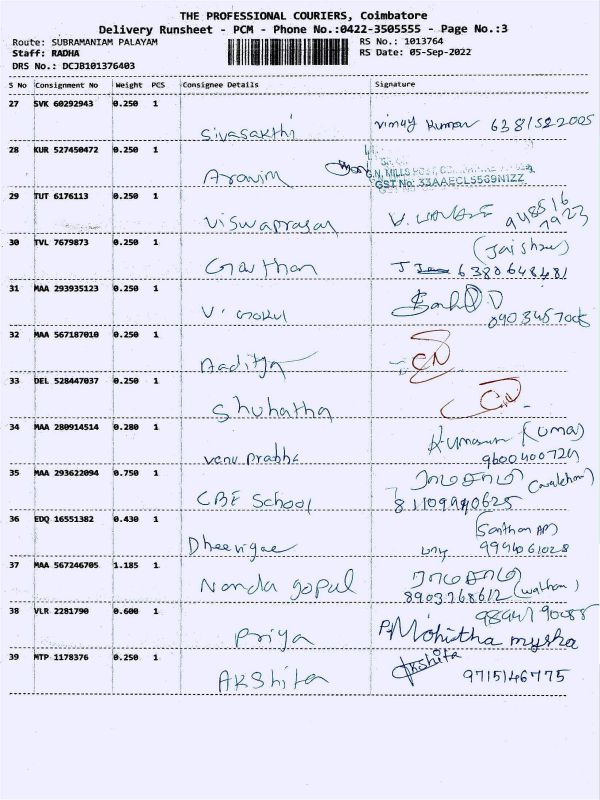 THE PROFESSIONAL COURIERS, Coimbatore
Delivery Runsheet - PCM - Phone No.:0422-3505555 - Page No.:3
Route: SUBRAMANIAM PALAYAM RS No.: 1013764
Staff: RADHA RS Date: 05-Sep-2022
DRS No.: DCJB101376403
S No Consignment No Weight PCS Consignee Details Signature
27 SVK 60292943 0.250 1
Sivasakthi Vinay Kumar
28 KUR 527450472 0.250 1
Aravim
G.N. MILLS POST,
GST No: 33AAECL5569N1ZZ
29 TUT 6176113 0.250 1
Viswaprasan 948516
7923
30 TVL 7679873 0.250 1
Gawthan 6380648481
31 MAA 293935123 0.250 1
V. Gokul 0903457005
32 MAA 567187010 0.250 1
Aaditya
33 DEL 528447037 0.250 1
Shuhatha
34 MAA 280914514 0.280 1
Venu Prabha Kumaran (Uma)
9600400724
35 MAA 293622094 0.750 1
CBE School
36 EDQ 16551382 0.430 1
Dheevigae 9994061028
37 MAA 567246705 1.185 1
Nanda gopal
8903768612
38 VLR 2281790 0.600 1
Priya P. Mohitha myska
39 MTP 1178376 0.250 1
AKShita Akshita 9715146775